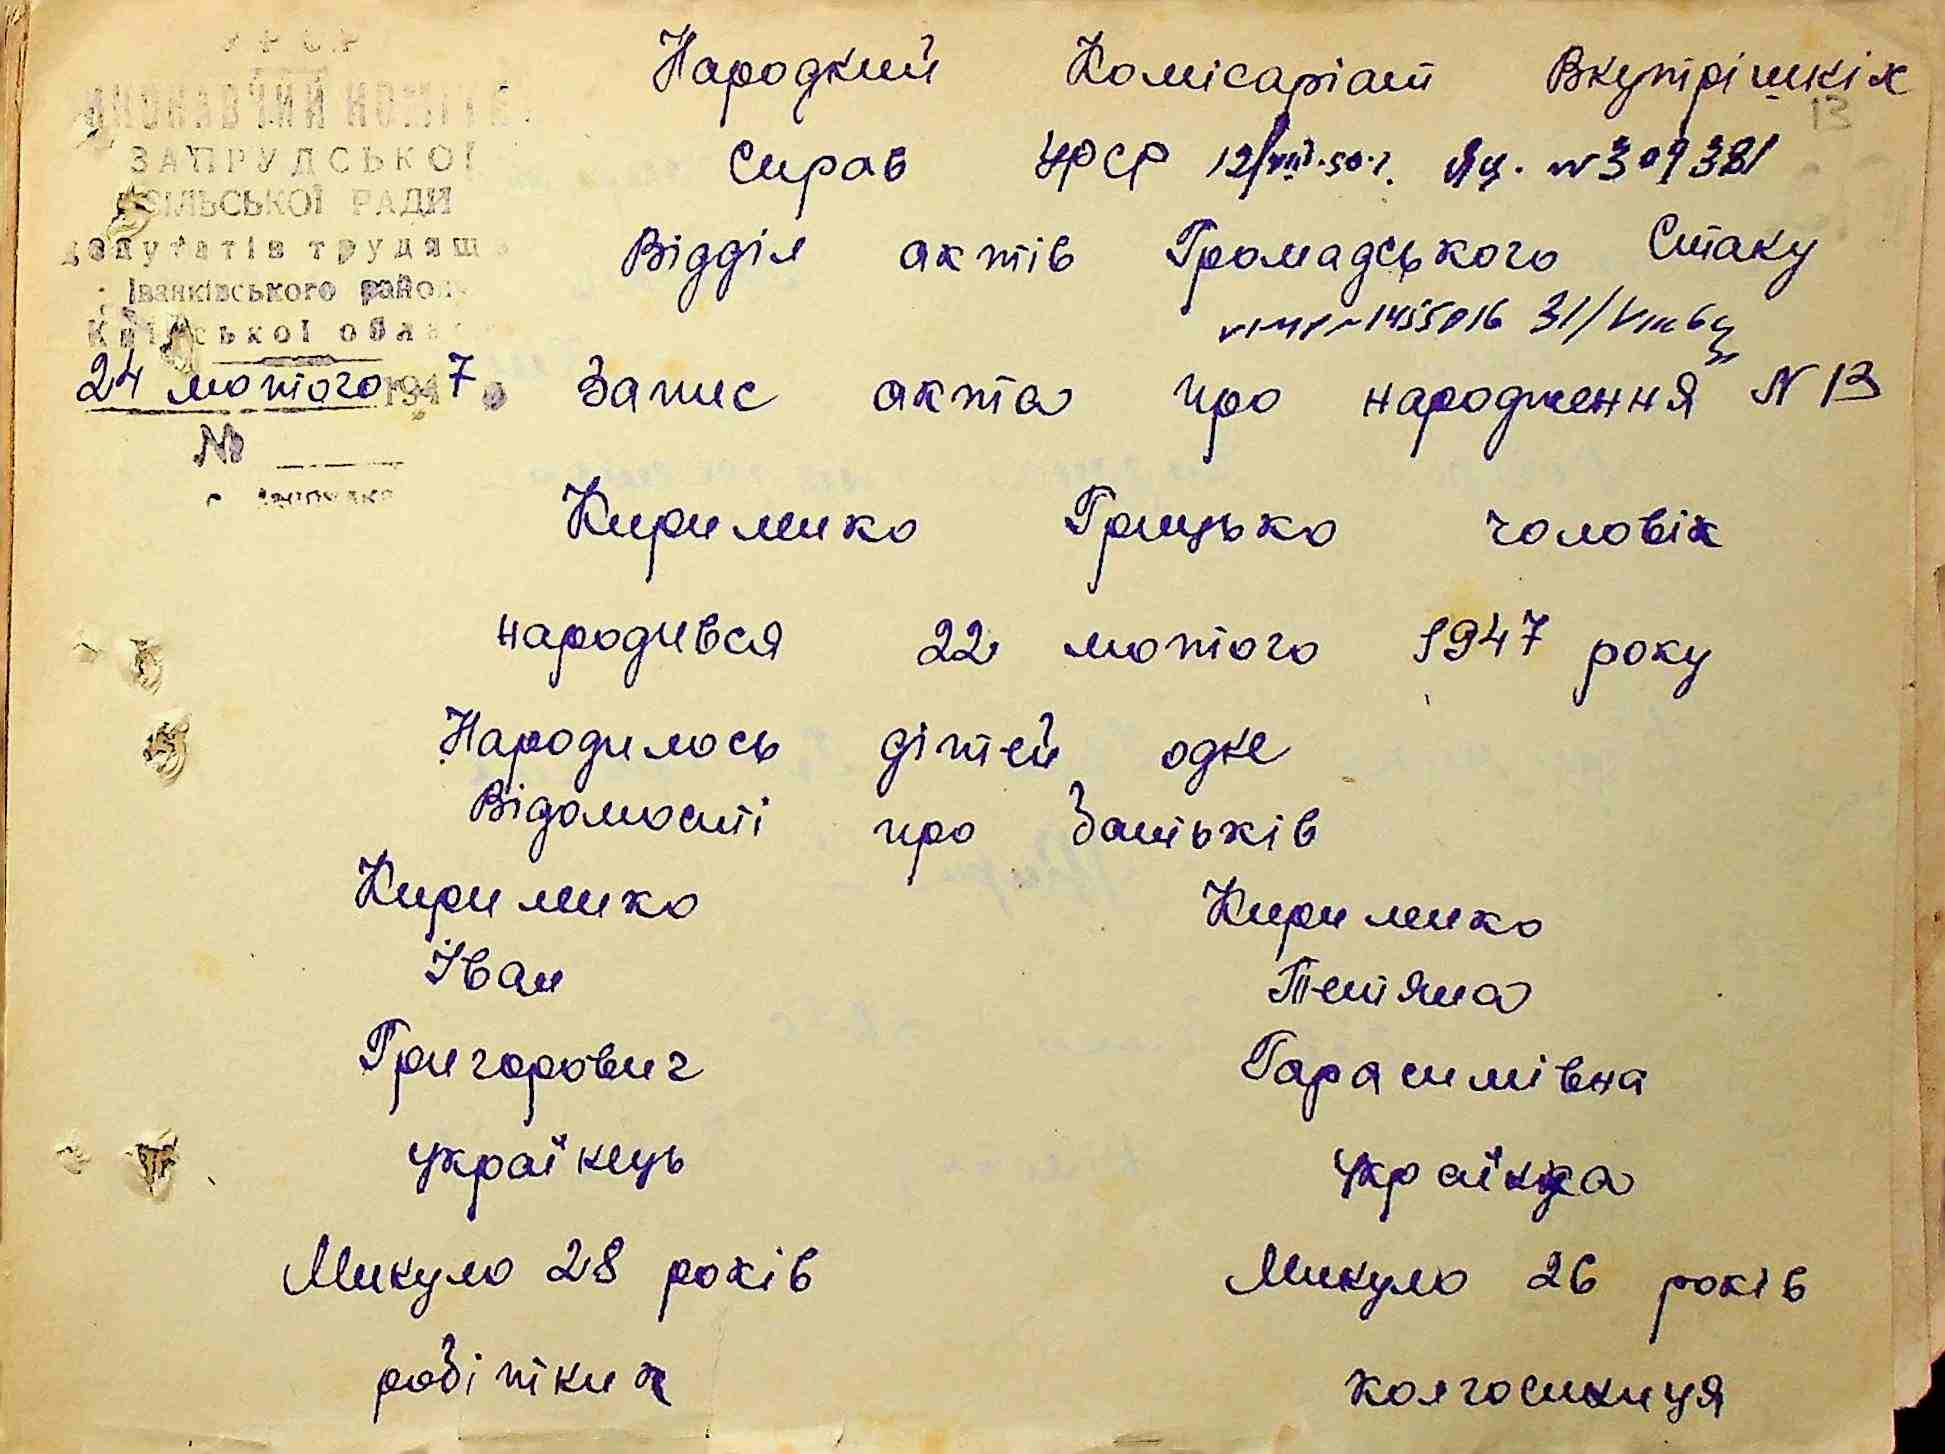 УРСР
ВИКОНАВЧИЙ КОМІТЕТ
ЗАПРУДСЬКОЇ
СІЛЬСЬКОЇ РАДИ
депутатів трудящ
Іванківського район
Київської обла
24 лютого 1947
№
Народний Комісаріат Внутрішніх
Справ УРСР 12/VIII-50 г. Яц. № 309381
Відділ актів Громадського Стану
Запис акта про народження N 13
13
Кириленко Грицько чоловік
народився 22 лютого 1947 року
Народилось дітей одне
Відомості про батьків
Кириленко Кириленко
Іван Тетяна
Григорович Гарасимівна
українець українка
Минуло 28 років Минуло 26 років
робітник колгоспниця